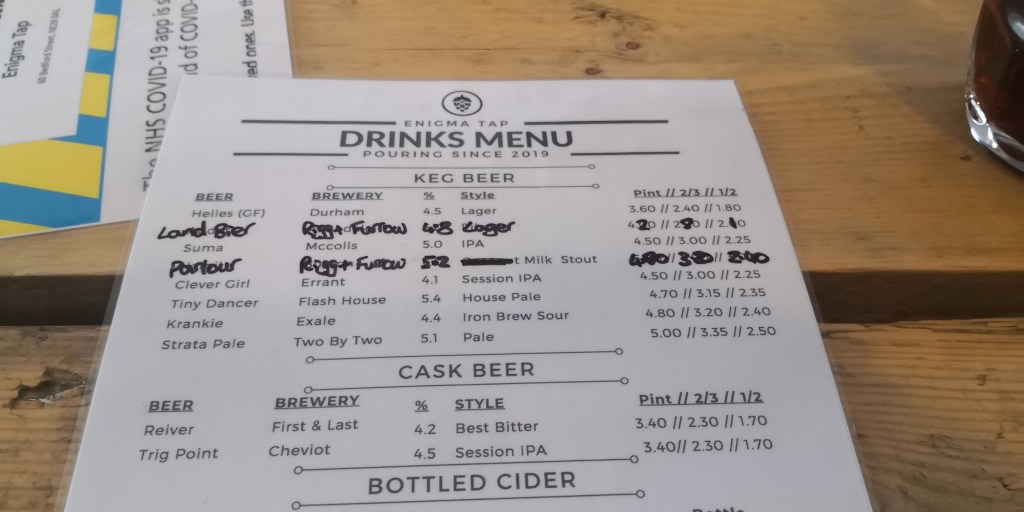 Enigma Tap
60 Bedford Street, NE29
The NHS COVID-19 app is s
d of COVID-
ved ones. Like th
ENIGMA TAP
DRINKS MENU
POURING SINCE 2019
KEG BEER
BEER BREWERY % Style Pint // 2/3 // 1/2
Helles (GF) Durham 4.5 Lager 3.60 // 2.40 // 1.80
Land Bier Rigg + Furrow 4.8 Lager 4.20 // 2.80 // 2.10
Suma Mccolls 5.0 IPA 4.50 // 3.00 // 2.25
Parlour Rigg + Furrow 5.2 Milk Stout
Clever Girl Errant 4.1 Session IPA 4.50 // 3.00 // 2.25
Tiny Dancer Flash House 5.4 House Pale 4.70 // 3.15 // 2.35
Krankie Exale 4.4 Iron Brew Sour 4.80 // 3.20 // 2.40
Strata Pale Two By Two 5.1 Pale 5.00 // 3.35 // 2.50
CASK BEER
BEER BREWERY % STYLE Pint // 2/3 // 1/2
Reiver First & Last 4.2 Best Bitter 3.40 // 2.30 // 1.70
Trig Point Cheviot 4.5 Session IPA 3.40// 2.30 // 1.70
BOTTLED CIDER
Bottle